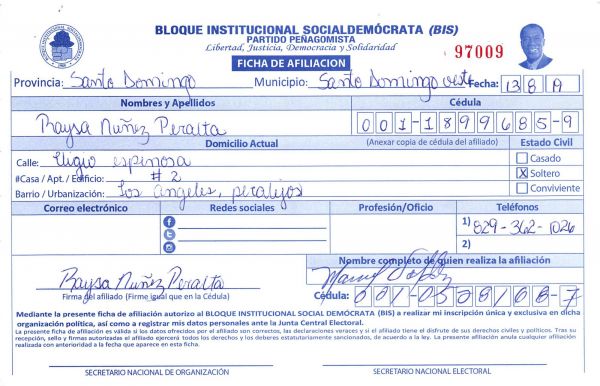 BLOQUE INSTITUCIONAL SOCIALDEMÓCRATA (BIS)
PARTIDO PEÑAGOMISTA
Libertad, Justicia, Democracia y Solidaridad
97009
FICHA DE AFILIACION
Provincia: Santo Domingo Municipio: Santo Domingo oeste Fecha: 13 8 19
Nombres y Apellidos Cédula
Raysa Nuñez Peralta 001-1899685-9
Domicilio Actual (Anexar copia de cédula del afiliado) Estado Civil
Calle: Eligio espinosa Casado
#Casa / Apt. / Edificio: # 2 X Soltero
Barrio / Urbanización: Los angeles, peralejos Conviviente
Correo electrónico Redes sociales Profesión/Oficio Teléfonos
1) 829-362-1026
2)
Nombre completo de quien realiza la afiliación
Raysa Nuñez Peralta
Firma del afiliado (Firme igual que en la Cédula) Cédula: 001-0508168-7
Mediante la presente ficha de afiliación autorizo al BLOQUE INSTITUCIONAL SOCIAL DEMÓCRATA (BIS) a realizar mi inscripción única y exclusiva en dicha
organización política, así como a registrar mis datos personales ante la Junta Central Electoral.
La presente ficha de afiliación es válida si los datos ofrecidos por el afiliado son correctos, las declaraciones veraces y si el titular tiene el disfrute de sus derechos civiles y políticos. Tras su
recepción, sello y firmas autorizadas el afiliado ejercerá todos los derechos y los deberes estatutariamente sancionados, de acuerdo a la ley. La presente afiliación anula cualquier afiliación
realizada con anterioridad a la fecha que aparece en esta ficha.
SECRETARIO NACIONAL DE ORGANIZACIÓN SECRETARIO NACIONAL ELECTORAL